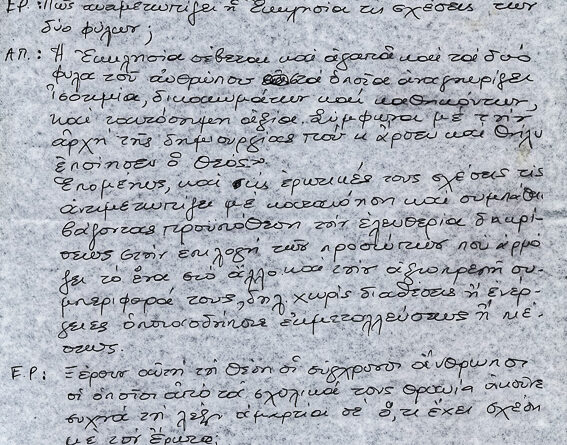 ΕΡ.: Πῶς ἀναμετωπίζει ἡ Ἐκκλησία τις σχέσεις των
δύο φύλων;
ΑΠ.: Ἡ Ἐκκλησία σέβεται καὶ ἀγαπᾶ καὶ τα δυό
φυλα τοῦ ἀνθρώπου στα ὁποῖα ἀναγνωρίζει
ἰσοτιμία, δικαιωμάτων καὶ καθηκόντων,
καὶ ταυτόσημη ἀξία. Σύμφωνα μέ τὴν
ἀρχὴ τῆς δημιουργίας ποὺ «ἄρσεν καὶ θῆλυ
ἐποίησεν ὁ Θεός».
Ἑπομένως, καὶ τις ἐρωτικές τους σχέσεις τις
ἀντιμετωπίζει μέ κατανόηση καὶ συμπάθεια
βάζοντας προϋπόθεση τὴν ἐλευθερία
στὴν ἐπιλογή τῶν προσώπων που ἁρμό-
ζει τὸ ἕνα στὸ ἄλλο καὶ τὴν ἀξιοπρεπῆ συ-
μπεριφορά τους, δηλ. χωρὶς διαθέσεις ἤ ἐνέρ-
γειες ἐκμεταλλεύσεως ἤ
ΕΡ.: Ξέρουν αὐτὴ τὴ θέση οἱ σύγχρονοι ἄνθρωποι
οἱ ὁποῖοι ἀπό τὰ σχολικά τους θρανία ἀκοῦνε
συχνά τη λέξη ἁμαρτία σέ ὅ,τι ἔχει σχέση
με τον ἔρωτα;